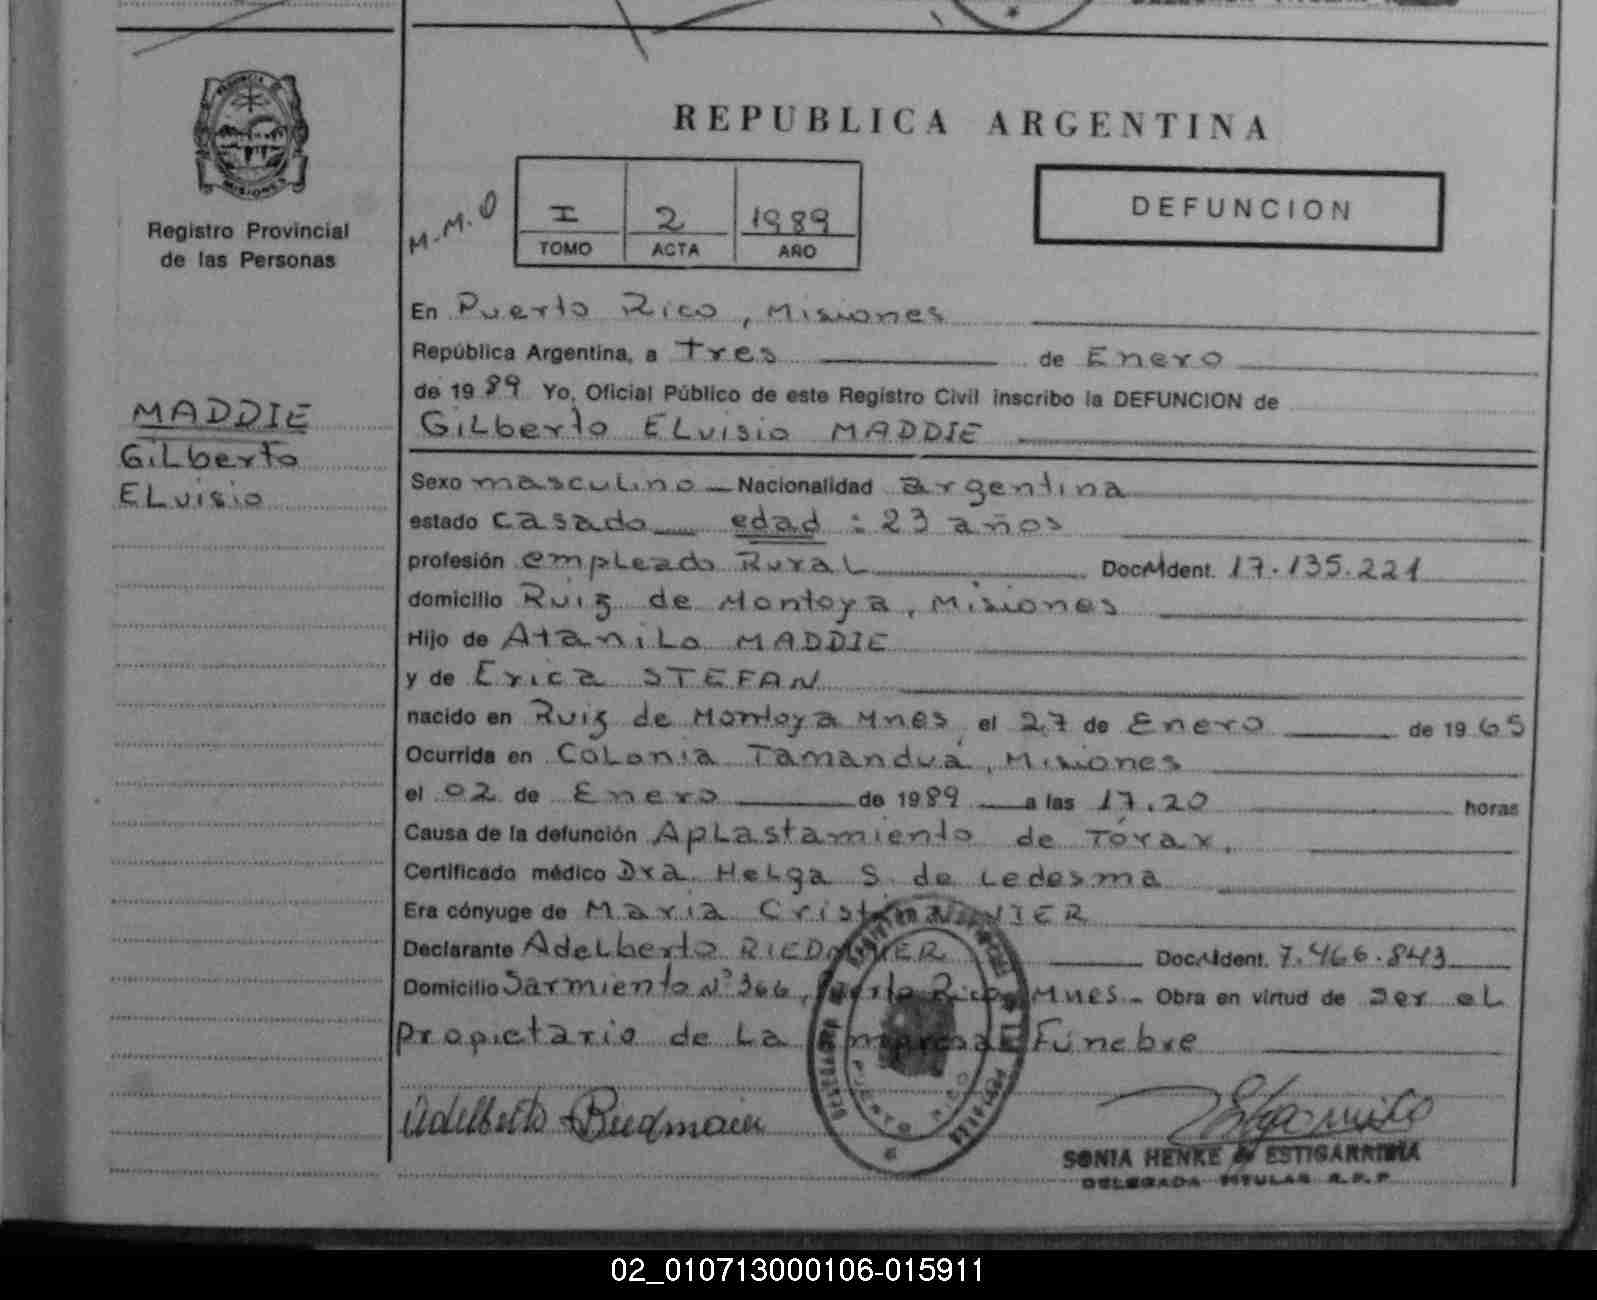 REPUBLICA ARGENTINA
PROVINCIA DE
MISIONES
Registro Provincial
de las Personas
M.M.O
I 2 1989
TOMO ACTA AÑO
DEFUNCION
MADDIE
Gilberto
ELvisio
En Puerto Rico, Misiones
República Argentina, a Tres de Enero
de 1989 Yo, Oficial Público de este Registro Civil inscribo la DEFUNCION de
Gilberto ELvisio MADDIE
Sexo masculino Nacionalidad argentina
estado casado edad : 23 años
profesión empleado Rural Doc. Ident. 17.135.221
domicilio Ruiz de Montoya, Misiones
Hijo de Atanilo MADDIE
y de Erica STEFAN
nacido en Ruiz de Montoya Mnes, el 27 de Enero de 1965
Ocurrida en Colonia Tamanduá, Misiones
el 02 de Enero de 1989 a las 17.20 horas
Causa de la defunción Aplastamiento de Tórax.
Certificado médico Dra. Helga S. de Ledesma
Era cónyuge de Maria
Declarante Adelberto Doc. Ident. 7.466.843
Domicilio Sarmiento Nº 366, Puerto Rico, Mnes - Obra en virtud de ser el
Propietario de La Empresa Fúnebre
Adelberto Riedmaier
SONIA HENKE de ESTIGARRIBIA
DELEGADA TITULAR R.P.P.
02_010713000106-015911